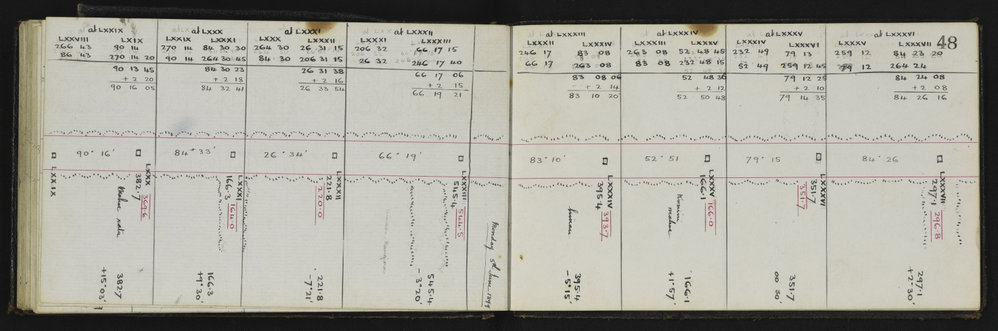 48
at LXXIX
LXXVIII LXIX
266 43 90 14
86 43 270 14 20
90 13 45
+ 2 20
90 16 05
at LXXX
LXXIX LXXXI
270 14 84 30 30
90 14 264 30 45
84 30 23
+ 2 15
84 32 41
at LXXXI
LXXX LXXXII
264 30 26 31 15
84 30 206 31 15
26 31 38
+ 2 16
26 33 54
at LXXXII
LXXXI LXXXIII
206 32 66 17 15
26 32 246 17 40
66 17 06
+ 2 15
66 19 21
LXXXII LXXXIV
246 17 83 08
66 17 263 08
83 08 06
+ 2 14
83 10 20
at LXXXIV
LXXXIII LXXXV
263 08 52 48 45
83 08 232 48 15
52 48 36
+ 2 12
52 50 48
at LXXXV
LXXXIV LXXXVI
232 49 79 13
52 49 259 12 45
79 12 25
+ 2 10
79 14 35
at LXXXVI
LXXXV LXXXVII
259 12 84 23 20
79 12 264 24
84 24 08
+ 2 08
84 26 16
90° 16'
84° 33'
26° 34'
66° 19'
83° 10'
52° 51
79° 15
84° 26
LXXIX
LXXX
382.7 369.6
382.7
+15° 03'
LXXXI
166.3 164.0
166.3
+9° 30'
LXXXII
221.8 220.0
221.8
-7° 21'
LXXXIII
545.4 544.5
545.4
-3° 20'
Monday 5th June 1899
LXXXIV
395.4 393.7
395.4
-5° 15'
LXXXV
166.1 166.0
166.1
+1° 57'
LXXXVI
351.7 351.7
351.7
00 30'
LXXXVII
297.1 296.8
297.1
+2° 30'